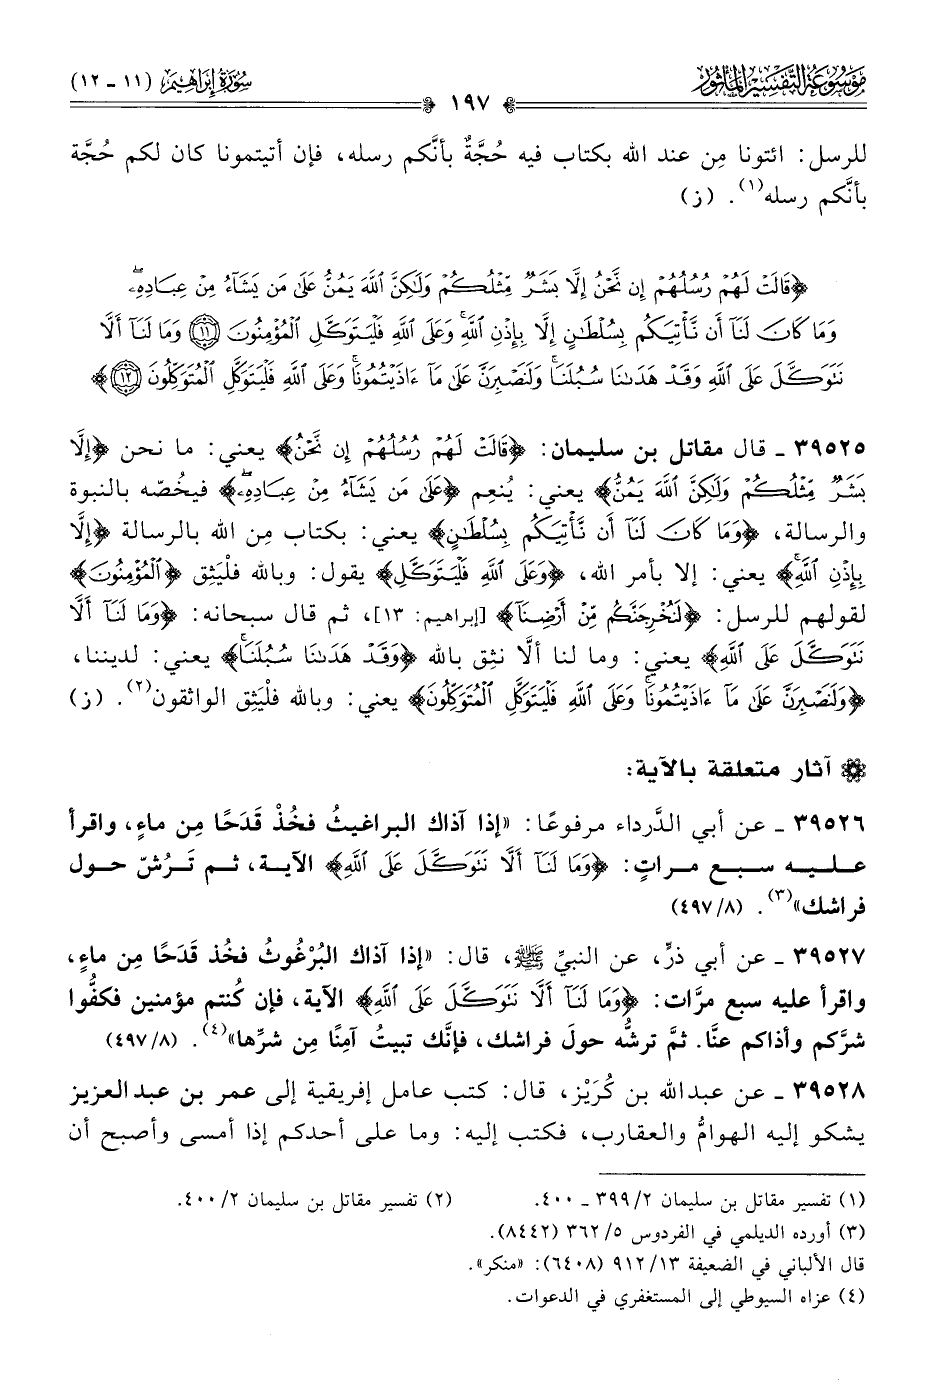 مَوْسُوعَة التَّفْسِير المَأْثُور
سُورَةُ إِبْرَاهِيم (١١ - ١٢)
١٩٧
للرسل: ائتونا مِن عند الله بكتاب فيه حُجَّةٌ بأنَّكم رسله، فإن أتيتمونا كان لكم حُجَّة
بأنَّكم رسله(١). (ز)
﴿قَالَتْ لَهُمْ رُسُلُهُمْ إِن نَّحْنُ إِلَّا بَشَرٌ مِّثْلُكُمْ وَلَٰكِنَّ ٱللَّهَ يَمُنُّ عَلَىٰ مَن يَشَآءُ مِنْ عِبَادِهِۦۖ
وَمَا كَانَ لَنَآ أَن نَّأْتِيَكُم بِسُلْطَٰنٍ إِلَّا بِإِذْنِ ٱللَّهِۚ وَعَلَى ٱللَّهِ فَلْيَتَوَكَّلِ ٱلْمُؤْمِنُونَ ۝١١ وَمَا لَنَآ أَلَّا
نَتَوَكَّلَ عَلَى ٱللَّهِ وَقَدْ هَدَىٰنَا سُبُلَنَاۚ وَلَنَصْبِرَنَّ عَلَىٰ مَآ ءَاذَيْتُمُونَاۚ وَعَلَى ٱللَّهِ فَلْيَتَوَكَّلِ ٱلْمُتَوَكِّلُونَ ۝١٢﴾
٣٩٥٢٥ - قال مقاتل بن سليمان: ﴿قَالَتْ لَهُمْ رُسُلُهُمْ إِن نَّحْنُ﴾ يعني: ما نحن ﴿إِلَّا
بَشَرٌ مِّثْلُكُمْ وَلَٰكِنَّ ٱللَّهَ يَمُنُّ﴾ يعني: يُنعم ﴿عَلَىٰ مَن يَشَآءُ مِنْ عِبَادِهِۦۖ﴾ فيخُصّه بالنبوة
والرسالة، ﴿وَمَا كَانَ لَنَآ أَن نَّأْتِيَكُم بِسُلْطَٰنٍ﴾ يعني: بكتاب مِن الله بالرسالة ﴿إِلَّا
بِإِذْنِ ٱللَّهِۚ﴾ يعني: إلا بأمر الله، ﴿وَعَلَى ٱللَّهِ فَلْيَتَوَكَّلِ﴾ يقول: وبالله فلْيَثِق ﴿ٱلْمُؤْمِنُونَ﴾
لقولهم للرسل: ﴿لَنُخْرِجَنَّكُم مِّنْ أَرْضِنَآ﴾ [إبراهيم: ١٣]، ثم قال سبحانه: ﴿وَمَا لَنَآ أَلَّا
نَتَوَكَّلَ عَلَى ٱللَّهِ﴾ يعني: وما لنا ألَّا نثِق بالله ﴿وَقَدْ هَدَىٰنَا سُبُلَنَاۚ﴾ يعني: لديننا،
﴿وَلَنَصْبِرَنَّ عَلَىٰ مَآ ءَاذَيْتُمُونَاۚ وَعَلَى ٱللَّهِ فَلْيَتَوَكَّلِ ٱلْمُتَوَكِّلُونَ﴾ يعني: وبالله فلْيَثِق الواثقون(٢). (ز)
آثار متعلقة بالآية:
٣٩٥٢٦ - عن أبي الدَّرداء مرفوعًا: «إذا آذاك البراغيثُ فخُذْ قَدَحًا مِن ماءٍ، واقرأ
عليه سبع مراتٍ: ﴿وَمَا لَنَآ أَلَّا نَتَوَكَّلَ عَلَى ٱللَّهِ﴾ الآية، ثم تَرُشّ حول
فراشك»(٣). (٨/٤٩٧)
٣٩٥٢٧ - عن أبي ذرٍّ، عن النبيِّ ﷺ، قال: «إذا آذاك البُرْغوثُ فخُذ قَدَحًا مِن ماءٍ،
واقرأ عليه سبع مرَّات: ﴿وَمَا لَنَآ أَلَّا نَتَوَكَّلَ عَلَى ٱللَّهِ﴾ الآية، فإن كُنتم مؤمنين فكفُّوا
شرَّكم وأذاكم عنَّا. ثمَّ ترشُّه حولَ فراشك، فإنَّك تبيتُ آمنًا مِن شرِّها»(٤). (٨/٤٩٧)
٣٩٥٢٨ - عن عبدالله بن كُرَيْز، قال: كتب عامل إفريقية إلى عمر بن عبدالعزيز
يشكو إليه الهوامُّ والعقارب، فكتب إليه: وما على أحدكم إذا أمسى وأصبح أن
(١) تفسير مقاتل بن سليمان ٢/٣٩٩ - ٤٠٠. (٢) تفسير مقاتل بن سليمان ٢/٤٠٠.
(٣) أورده الديلمي في الفردوس ٥/٣٦٢ (٨٤٤٢).
قال الألباني في الضعيفة ١٣/٩١٢ (٦٤٠٨): «منكر».
(٤) عزاه السيوطي إلى المستغفري في الدعوات.